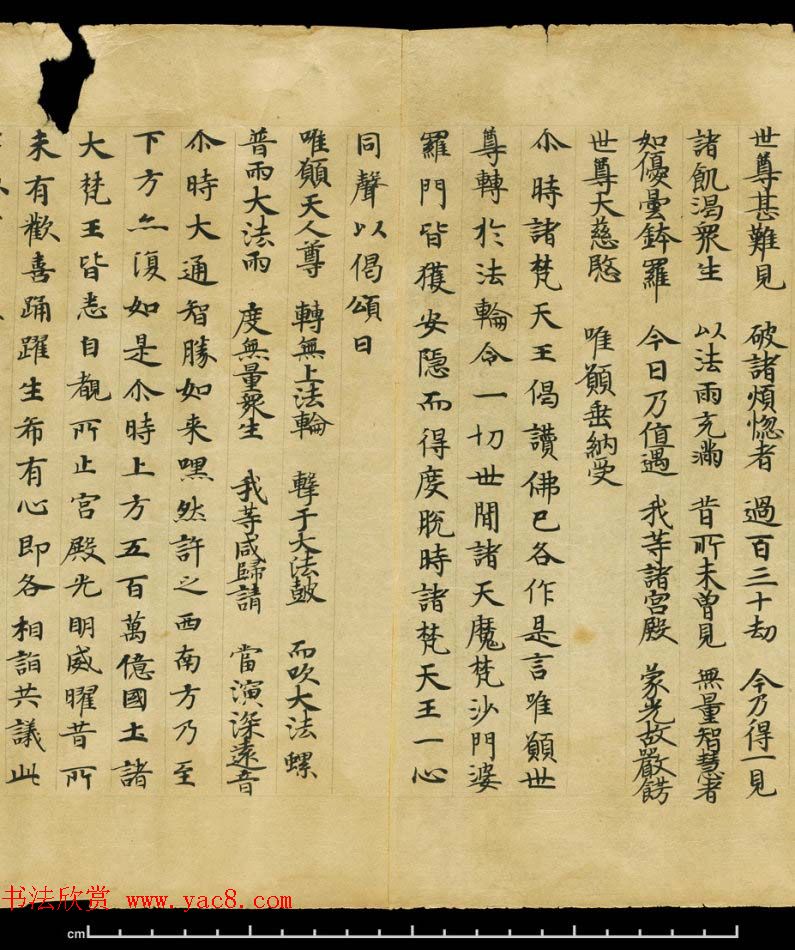 世尊甚難見　破諸煩惱者　過百三十劫　今乃得一見
諸飢渴衆生　以法雨充滿　昔所未曾見　無量智慧者
如優曇鉢羅　今日乃值遇　我等諸宮殿　蒙光故嚴餝
世尊大慈愍　唯願垂納受
尒時諸梵天王偈讚佛已各作是言唯願世
尊轉於法輪令一切世閒諸天魔梵沙門婆
羅門皆獲安隱而得度脫時諸梵天王一心
同聲以偈頌曰
唯願天人尊　轉無上法輪　擊于大法鼓　而吹大法螺
普雨大法雨　度無量衆生　我等咸歸請　當演深遠音
尒時大通智勝如來嘿然許之西南方乃至
下方亦復如是尒時上方五百萬億國土諸
大梵王皆悉自覩所止宮殿光明威曜昔所
未有歡喜踊躍生希有心即各相詣共議此
书法欣赏 www.yac8.com
cm